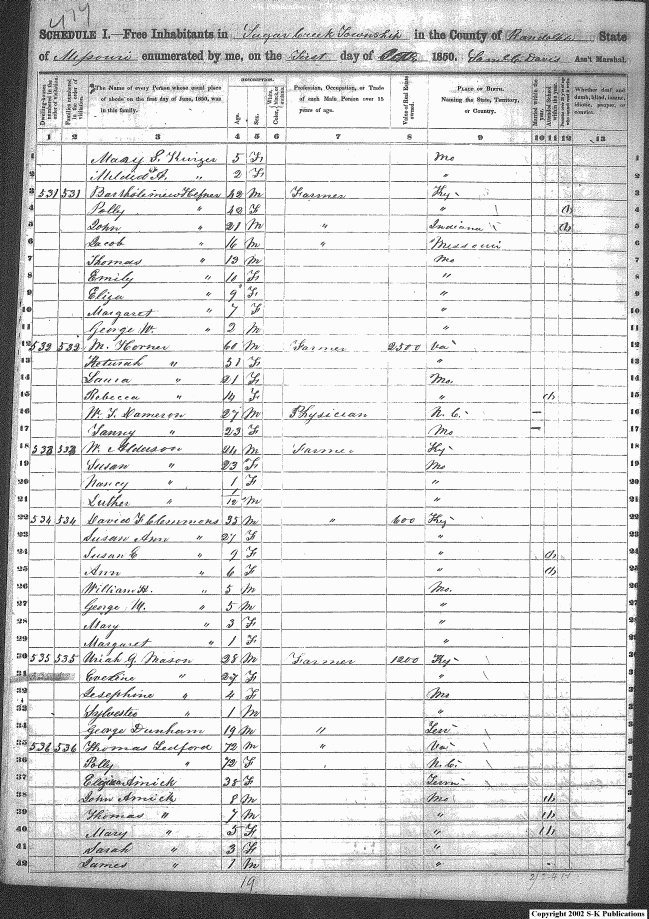 © 2002 S-K Publications
479
SCHEDULE I.—Free Inhabitants in Sugar Creek Township in the County of Randolph State
of Missouri enumerated by me, on the First day of Octr 1850. Saml C Davis Ass't Marshal.
Dwelling-houses numbered in the order of visitation.
Families numbered in the order of visitation.
The Name of every Person whose usual place of abode on the first day of June, 1850, was in this family.
DESCRIPTION.
Age.
Sex.
Color, White, black, or mulatto.
Profession, Occupation, or Trade of each Male Person over 15 years of age.
Value of Real Estate owned.
PLACE OF BIRTH. Naming the State, Territory, or Country.
Married within the year.
Attended School within the year.
Whether deaf and dumb, blind, insane, idiotic, pauper, or convict.
1 2 3 4 5 6 7 8 9 10 11 12 13
1 Mary S. Kinzer 5 F Mo 1
2 Mildred A. " 2 F " 2
3 531 531 Bartholemiew Hefner 42 M Farmer Ky 3
4 Polly " 42 F " 1 4
5 John " 21 M " Indiana 1 5
6 Jacob " 16 M " Missouri 6
7 Thomas " 13 M Mo 7
8 Emily " 10 F " 8
9 Eliza " 9 F " 9
10 Margaret " 7 F " 10
11 George W. " 2 M " 11
12 532 532 M. Horner 60 M Farmer 2500 Va 12
13 Keturah " 51 F " 13
14 Laura " 21 F Mo. 14
15 Rebecca " 14 F " 1 15
16 W. T. Dameron 27 M Physician N. C. — 16
17 Fanny " 23 F Mo — 17
18 533 533 W. Alderson 24 M Farmer Ky 18
19 Susan " 23 F Mo 19
20 Nancy " 1 F " 20
21 Luther " 1/12 M " 21
22 534 534 David F Clemmons 35 M " 600 Ky 22
23 Susan Ann " 27 F " 23
24 Susan E " 9 F " 1 24
25 Ann " 6 F " 1 25
26 William H. " 5 M Mo. 26
27 George W. " 5 M " 27
28 Mary " 3 F " 28
29 Margaret " 1 F " 29
30 535 535 Uriah G. Mason 28 M Farmer 1200 Ky 30
31 Eveline " 27 F " 31
32 Josephine " 4 F Mo 32
33 Sylvester " 1 M " 33
34 George Dunham 19 M " Ten 34
35 536 536 Thomas Ledford 72 M " Va 35
36 Polly " 72 F N. C. 36
37 Amick 38 F Tenn 37
38 John Amick 8 M Mo 1 38
39 Thomas " 7 M " 1 39
40 Mary " 5 F " 1 40
41 Sarah " 3 F " 41
42 James " 1 M " 42
19
Copyright 2002 S-K Publications